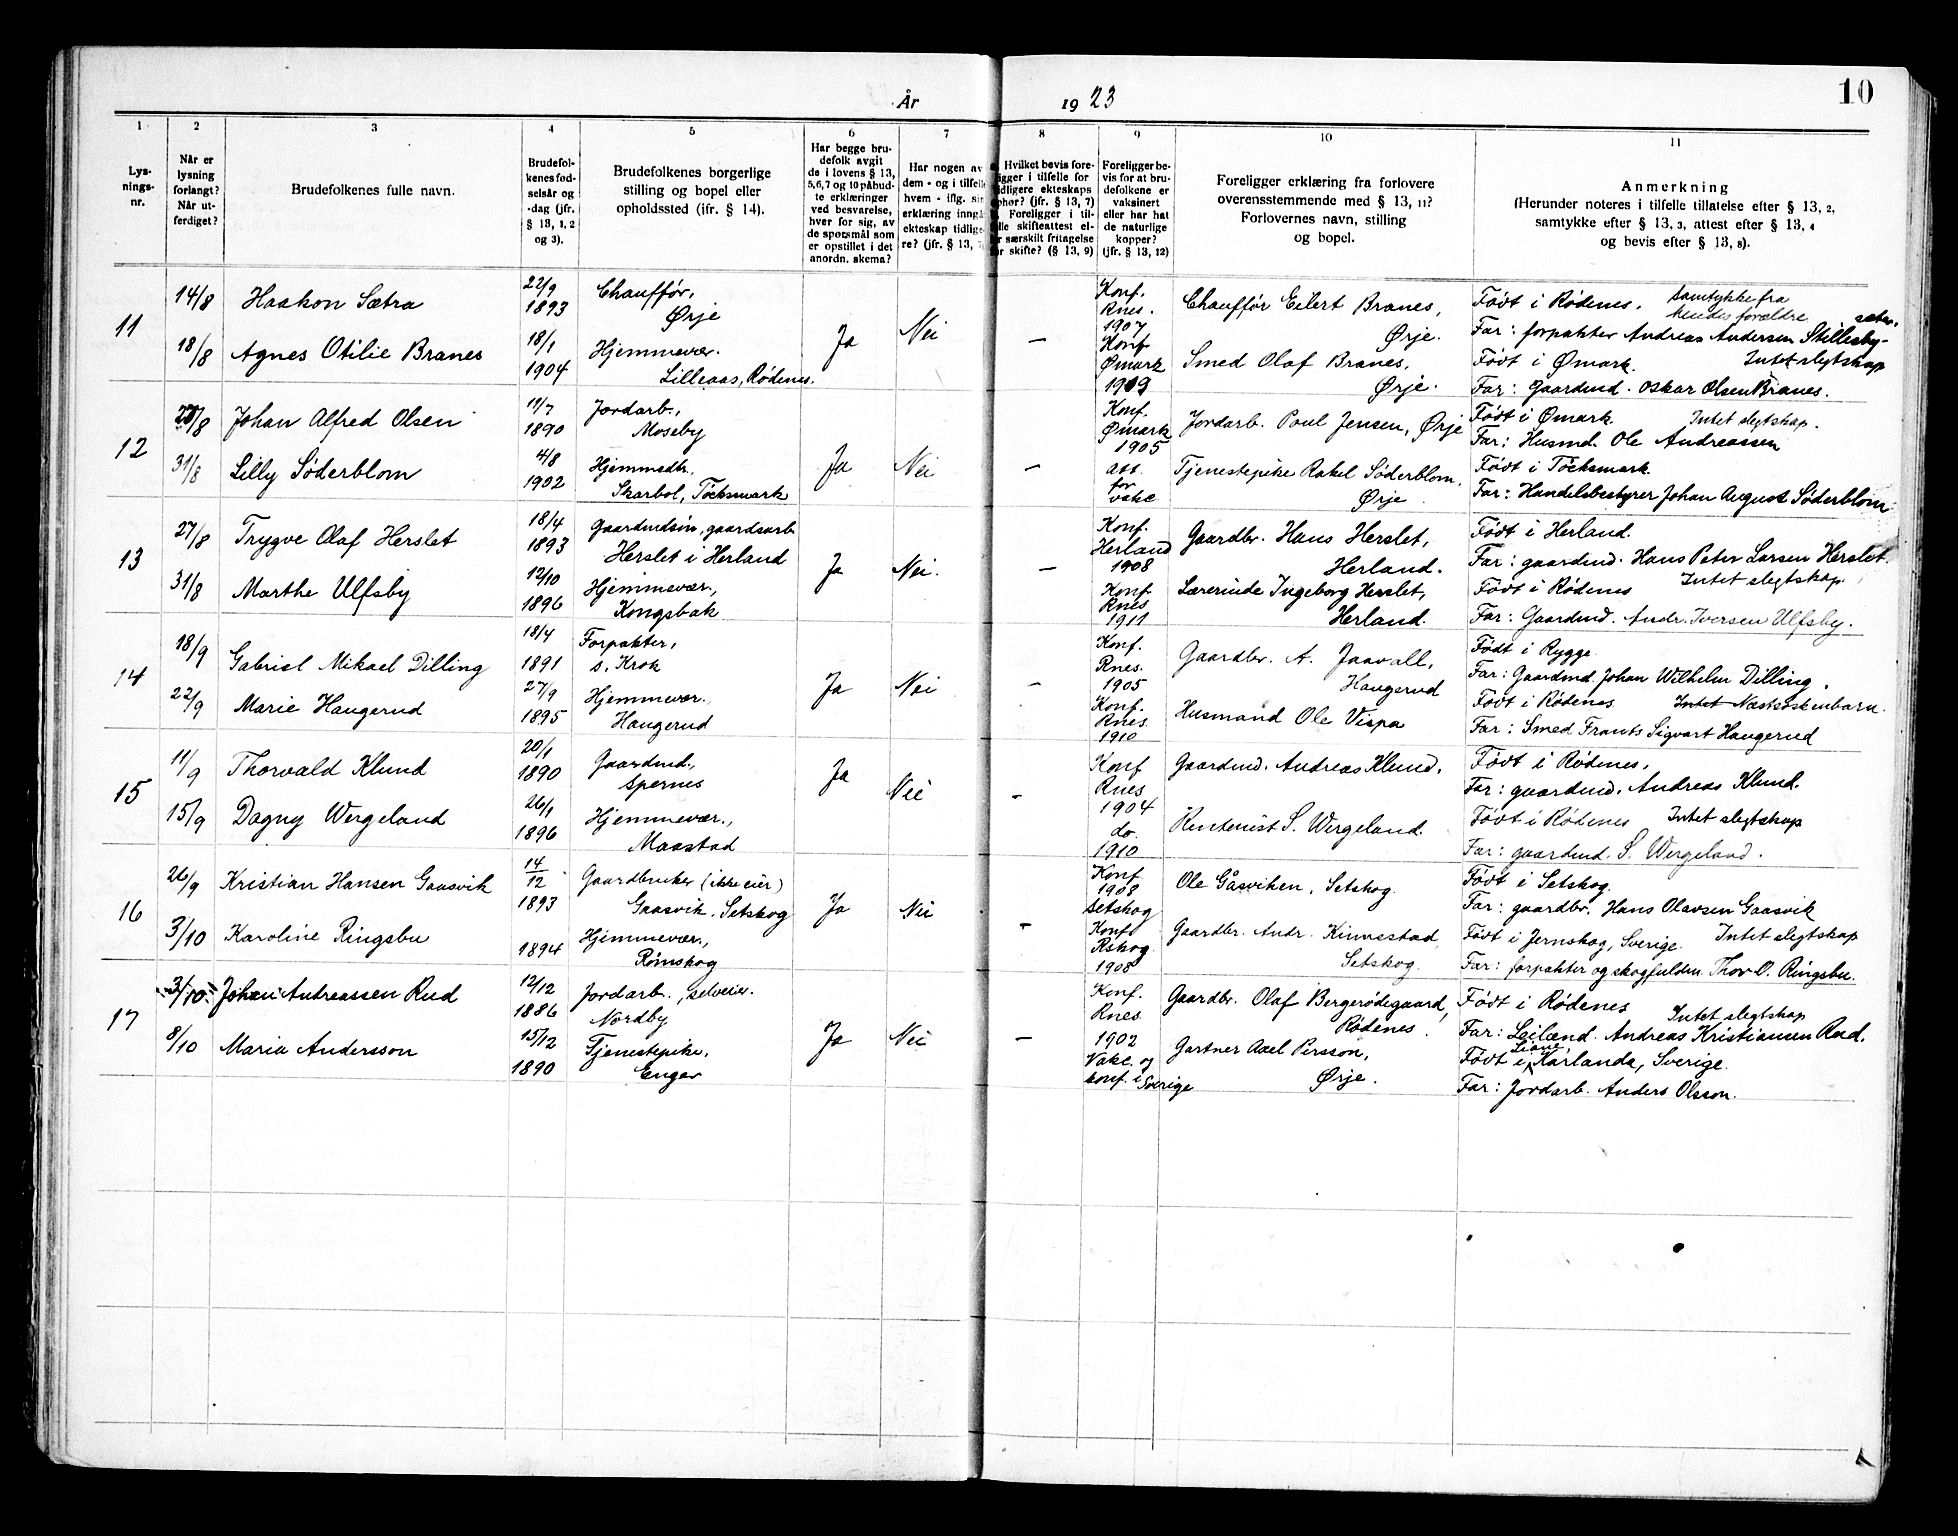 10
År 1923
1 2 3 4 5 6 7 8 9 10 11
Lys-
nings-
nr.
Når er
lysning
forlangt?
Når ut-
ferdiget?
Brudefolkenes fulle navn.
Brudefol-
kenes fød-
selsår og
-dag (jfr.
§ 13, 1, 2
og 3).
Brudefolkenes borgerlige
stilling og bopel eller
opholdssted (ifr. § 14).
Har begge bru-
defolk avgit
de i lovens § 13,
5,6,7 og 10 påbud-
te erklæringer
ved besvarelse,
hver for sig, av
de spørsmål som
er opstillet i det
anordn. skema?
Har nogen av
dem - og i tilfelle
hvem - iflg. sin
erklæring inngå
ekteskap tidlige-
re? (jfr. § 13, 7
Hvilket bevis fore-
ligger i tilfelle for
tidligere ekteskaps
ophør? (jfr. § 13, 7)
Foreligger i til-
felle skifteattest el-
særskilt fritagelse
skifte? (§ 13, 9)
Foreligger be-
vis for at bru-
defolkene er
vaksinert
eller har hat
de naturlige
kopper?
(jfr. § 13, 12)
Foreligger erklæring fra forlovere
overensstemmende med § 13, 11?
Forlovernes navn, stilling
og bopel.
Anmerkning
(Herunder noteres i tilfelle tillatelse efter § 13, 2,
samtykke efter § 13, 3, attest efter § 13, 4
og bevis efter § 13, 8).
11
14/8 Haakon Sætra 22/9 1893 Chauffør, Ørje
18/8 Agnes Otilie Branes 18/1 1904 Hjemmevær. Lilleaas, Rødenes.
Ja Nei —
Konf. Rnes. 1907 Chauffør Eilert Branes, Ørje.
Konf Ømark 1919 Smed Olaf Branes, Ørje.
Født i Rødenes. Samtykke fra hendes forældre
Far: forpakter Andreas Andersen Stillesby- sæter.
Født i Ømark. Intet slegtskap
Far: Gaardmd. Oskar Olsen Branes.
12
/8 Johan Alfred Olsen 11/7 1890 Jordarb., Moseby
31/8 Lilly Söderblom 4/8 1902 Hjemmedtr. Skarbol, Töcksmark
Ja Nei —
Konf. Ømark 1905 Jordarb. Paul Jensen, Ørje
att. for vakc Tjenestepike Rakel Söderblom, Ørje
Født i Ømark. Intet slegtskap.
Far: Husmd. Ole Andreassen
Født i Töcksmark.
Far: Handelsbestyrer Johan August Söderblom
13
27/8 Trygve Olaf Herslet 18/4 1893 Gaardmdsøn, gaardsarb Herslet i Herland
31/8 Marthe Ulfsby 12/10 1896 Hjemmevær., Kongsbak
Ja Nei. —
Konf. Herland 1908 Gaardbr. Hans Herslet, Herland.
Konf Rnes 1911 Lærerinde Ingeborg Herslet, Herland.
Født i Herland.
Far: gaardmd. Hans Peter Larsen Herslet.
Født i Rødenes Intet slegtskap
Far: Gaardmd. Andr. Iversen Ulfsby.
14
18/9 Gabriel Mikael Dilling 18/4 1891 Forpakter, s. Krok
22/9 Marie Haugerud 27/9 1895 Hjemmevær. Haugerud
Ja Nei —
Konf. Rnes. 1905 Gaardbr. A. Jaavall, Haugerud
Konf. Rnes 1910 Husmand Ole Vispa
Født i Rygge.
Far: Gaardmd Johan Wilhelm Dilling.
Født i Rødenes. Intet Næstsøskenbarn.
Far: Smed Frants Sigvart Haugerud
15
11/9 Thorvald Klund 20/1 1890 Gaardmd., Spernes
15/9 Dagny Wergeland 26/1 1896 Hjemmevær., Maastad
Ja Nei —
Konf Rnes 1904 Gaardmd. Andreas Klund.
do. 1910 Rentenist S. Wergeland.
Født i Rødenes.
Far: gaardmd. Andreas Klund.
Født i Rødenes Intet slegtskap
Far: gaardmd. S. Wergeland.
16
26/9 Kristian Hansen Gaasvik 14/12 1893 Gaardbruker (ikke eier) Gaasvik, Setskog
3/10 Karoline Ringsbu 1894 Hjemmevær., Rømskog
Ja Nei —
Konf 1908 Setskog Ole Gåsviken, Setskog.
Konf Rskog 1908 Gaardbr. Andr. Kinnestad Setskog.
Født i Setskog.
Far: gaardbr. Hans Olavsen Gaasvik
Født i Jernskog, Sverige. Intet slegtskap
Far: forpakter og skogfulden. Thor O. Ringsbu.
17
3/10 Johan Andreassen Rud 12/12 1886 Jordarb., selveier. Nordby
8/10 Maria Andersson 15/12 1890 Tjenestepike, Enger
Ja Nei —
Konf. Rnes 1902 Gaardbr. Olaf Bergerødegaard, Rødenes.
Vakc. og konf. i Sverige Gartner Axel Persson, Ørje.
Født i Rødenes Intet slegtskap
Far: Leilænd. Andreas Kristiansen Rud.
Født i Karlanda, Sverige.
Far: Jordarb. Anders Olsson.